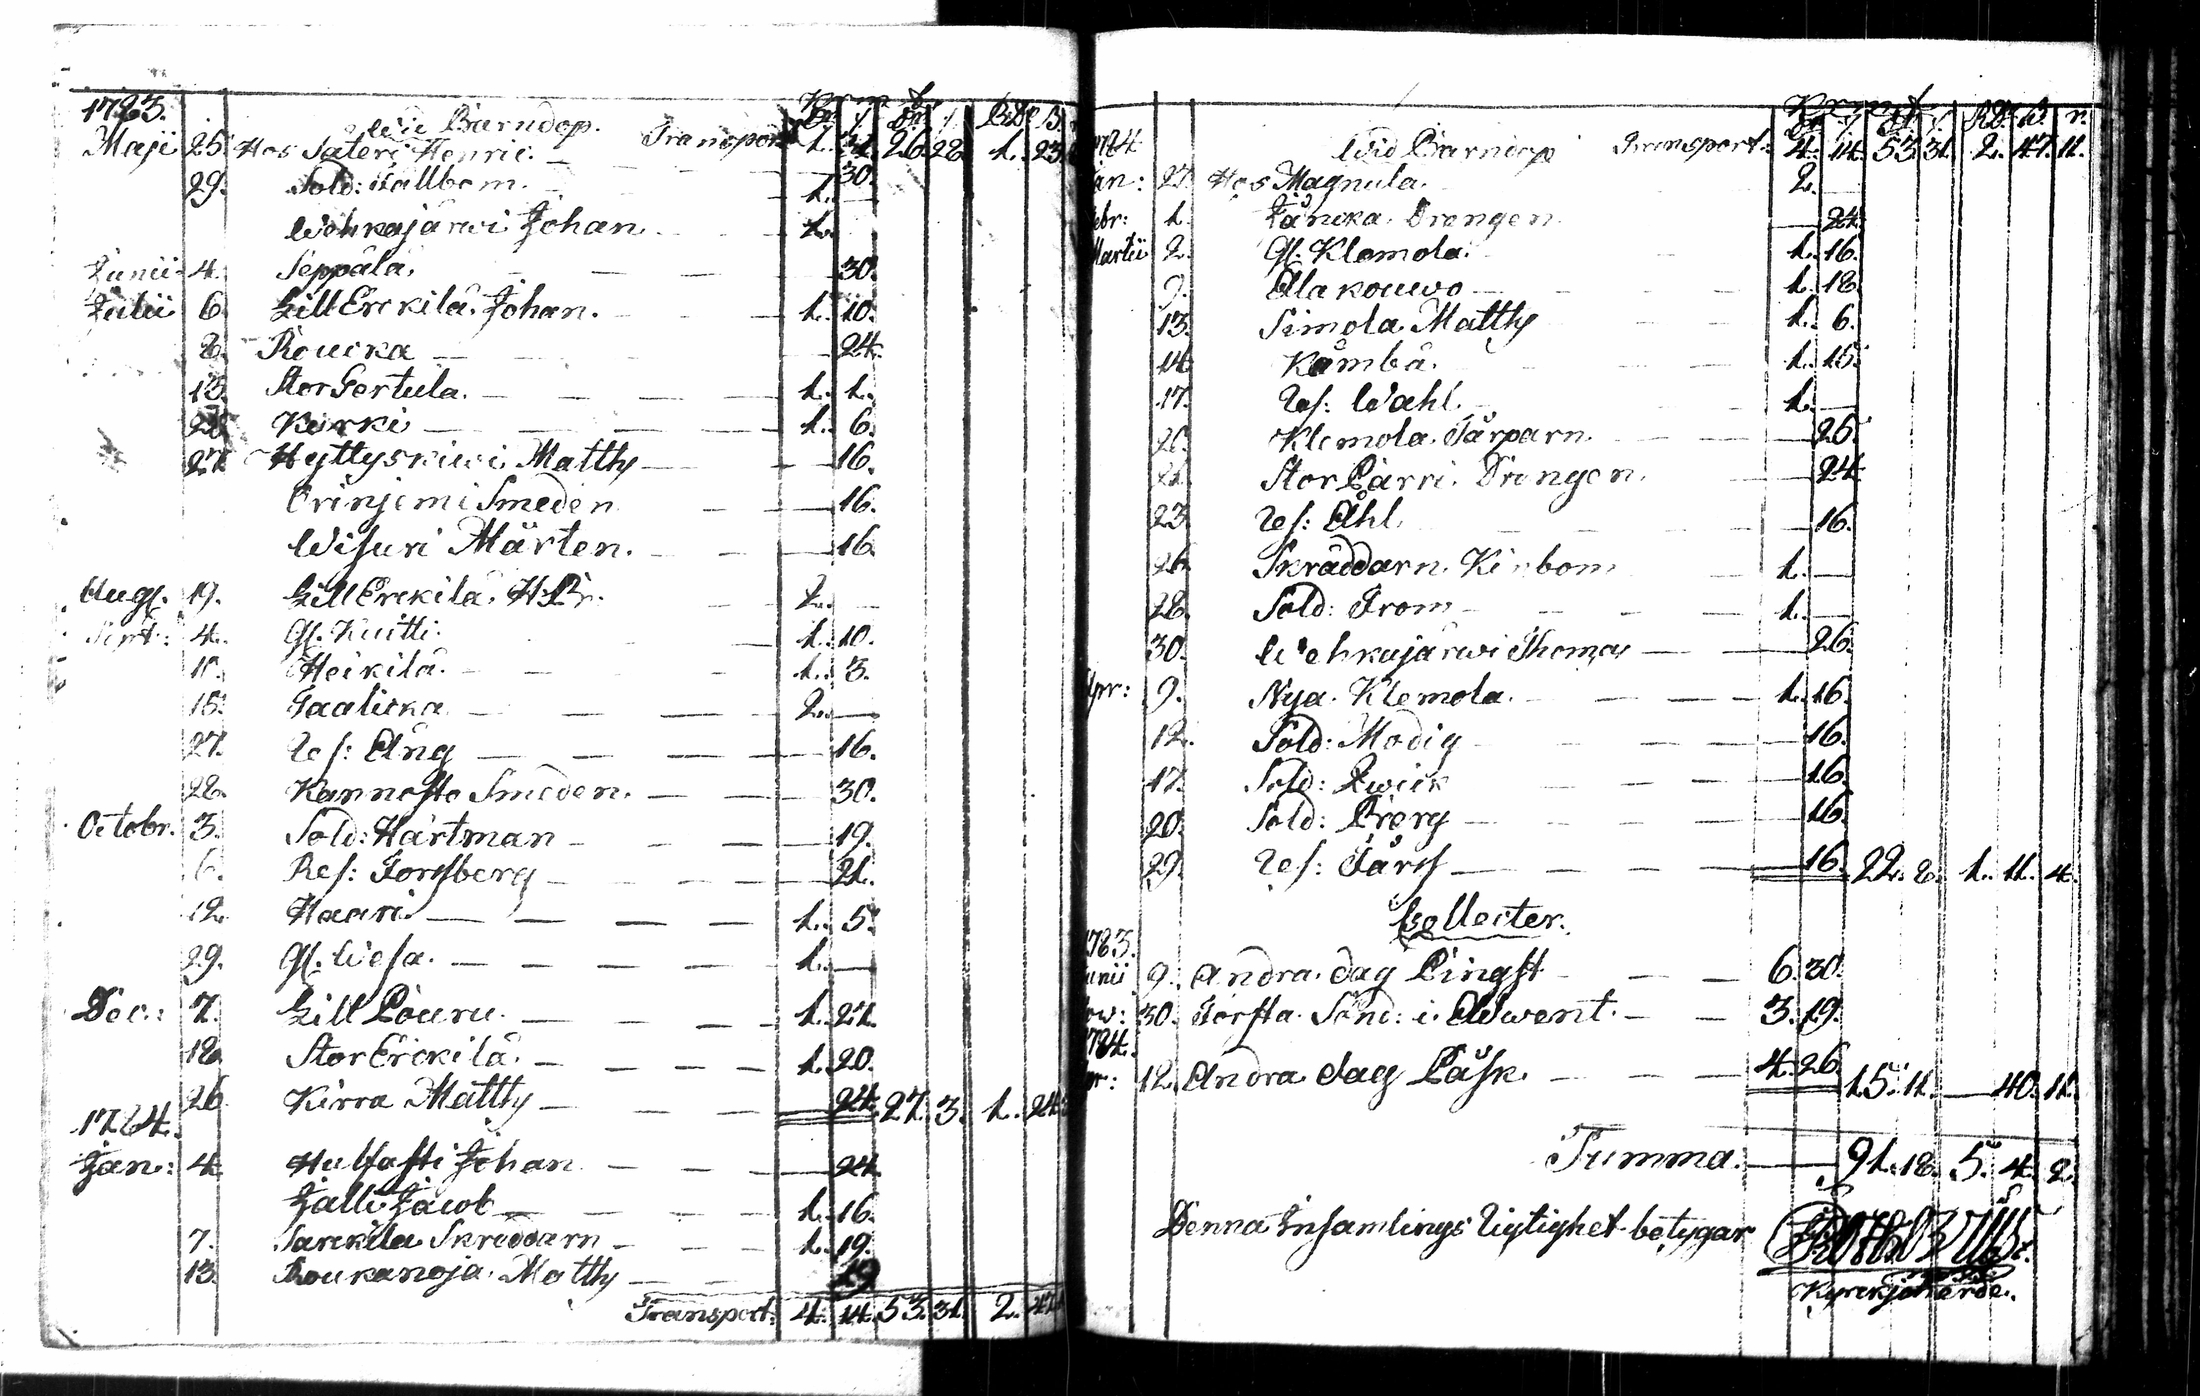 1783. Wid Barndop. Transport
Maji 25. Hos Säteri Henric. 1. 31. 26. 28. 1. 23
29. Sold: Hallbom. 30.
Wohkajärwi Johan 1.
Junii 4. Seppälä. 30.
Julii 6. Lill Erckilä Johan. 1. 10.
8. Roucka 24.
13. Stor Sertula. 1. 1.
Kurki 1. 6.
27. Hyttyskiwi Matthy 16.
Orinjemi Smeden 16.
Wisuri Mårten. 16.
Aug. 19. Lill Erckilä 2.
Sept: 4. Gl. Kuitti. 1. 10.
Heikilä. 1. 3.
15. Taalicka 2.
27. Res: Äng 16.
28. Kannosto Smeden. 30.
Octobr. 3. Sold: Hartman 19.
6. Res: Forsberg 21.
12. Haari 1. 5.
29. Gl. Wesa. 1.
Dec: 7. Lill Pouru. 1. 21.
18. Stor Erckilä. 1. 20.
26. Kirra Matthy 24. 27. 3. 1. 24
1784.
Jan: 4. Hulfasti Johan 24.
Jalli Jacob 1. 16.
7. Sarckila Skräddarn 1. 19.
13. Roukanoja Matthy 19
Transport: 4. 14. 53. 31. 2. 47
1784 Wid Barndop Transport: 4. 14. 53. 31. 2. 47. 11.
Jan: 27. Hos Magnula. 2.
Febr: 1. Jäncka Drengen 24.
Martii 2. Gl. Klemola. 1. 16.
9. Ala kouwo 1. 18.
13. Simola Matthy 1. 6.
14. Kämbä. 1. 15.
17. Res: Wahl. 1.
20. Klemola Tårparn 26.
Stor Pärri Drengen. 24.
23. Res: Ahl. 16.
26. Skräddarn Kinbom 1.
28. Sold: From 1.
30. Wehkajärwi Thomas 26.
Apr: 9. Nya Klemola. 1. 16.
12. Sold: Modig 16.
17. Sold: Qwick 16.
20. Sold: Berg 16.
29. Res: Färs 16. 22. 8. 1. 11. 4.
Collecter.
1783.
Junii 9. Andra dag Pingst 6. 30.
Now: 30. Förfta Sönd: i Adwent. 3. 19.
1784.
Apr: 12. Andra dag Påsk. 4. 26. 15. 11. 40. 11.
Summa. 91. 18. 5. 4. 2.
Denna Insamlings Rigtighet betygar
Kyrckjoherde.